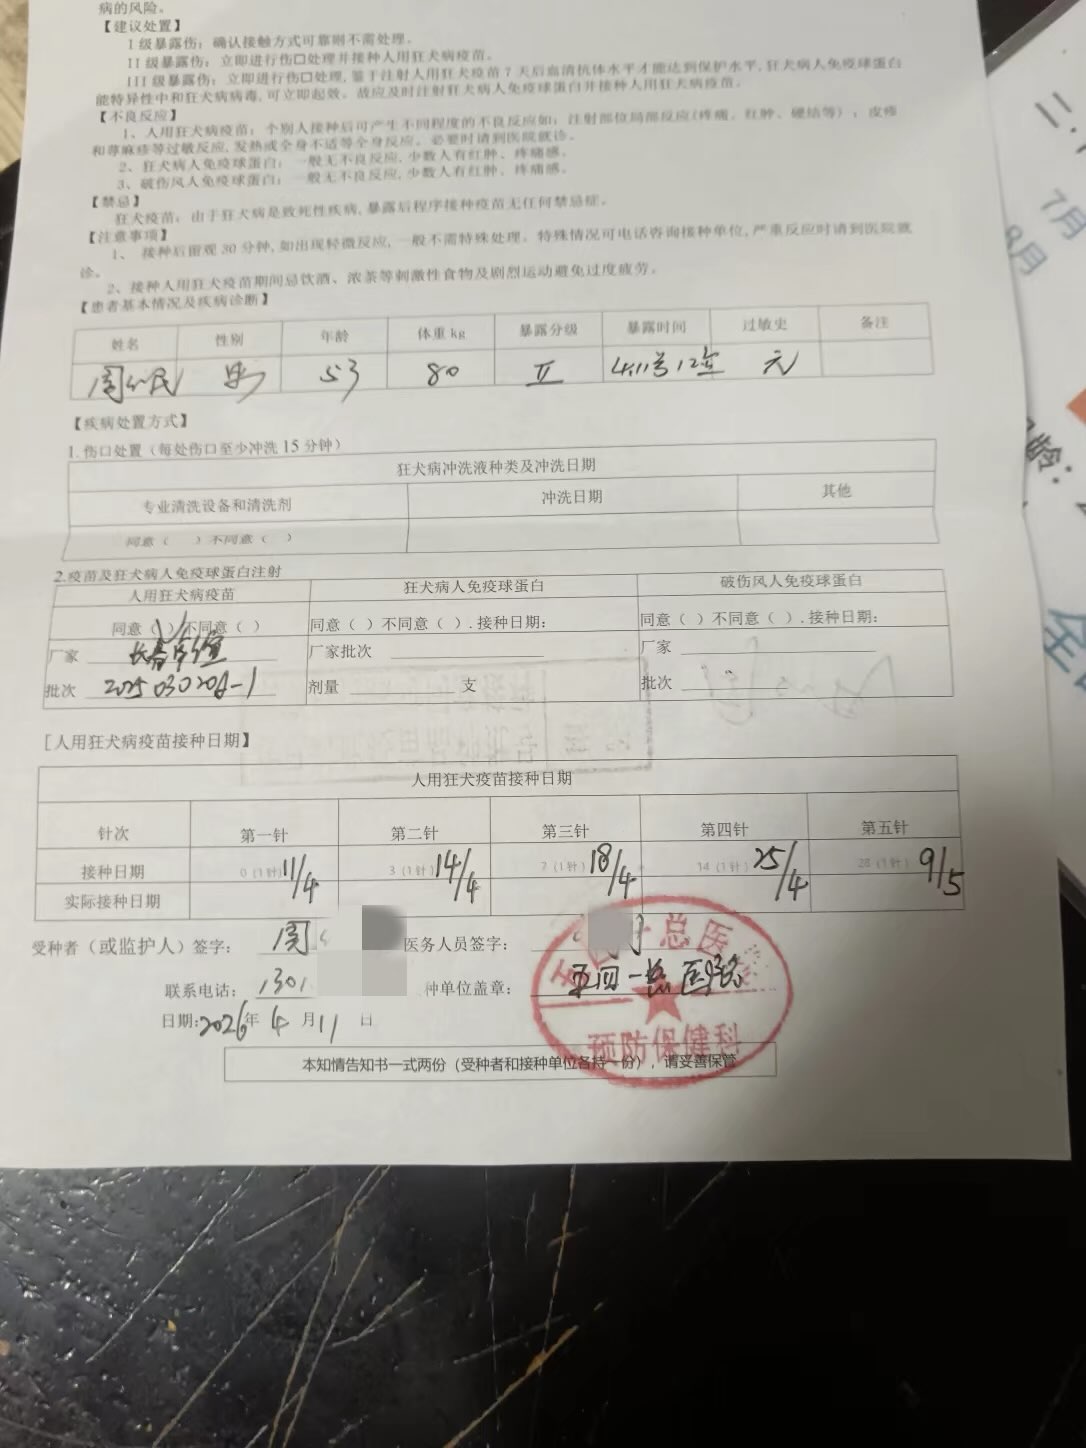 病的风险。
【建议处置】
I 级暴露伤：确认接触方式可靠则不需处理。
II 级暴露伤：立即进行伤口处理并接种人用狂犬病疫苗。
III 级暴露伤：立即进行伤口处理，鉴于注射人用狂犬疫苗 7 天后血清抗体水平才能达到保护水平，狂犬病人免疫球蛋白
能特异性中和狂犬病病毒，可立即起效。故应及时注射狂犬病人免疫球蛋白并接种人用狂犬病疫苗。
【不良反应】
1、人用狂犬病疫苗：个别人接种后可产生不同程度的不良反应如：注射部位局部反应(疼痛、红肿、硬结等)，皮疹
和荨麻疹等过敏反应，发热或全身不适等全身反应。必要时请到医院就诊。
2、狂犬病人免疫球蛋白：一般无不良反应，少数人有红肿、疼痛感。
3、破伤风人免疫球蛋白：一般无不良反应，少数人有红肿、疼痛感。
【禁忌】
狂犬疫苗：由于狂犬病是致死性疾病，暴露后程序接种疫苗无任何禁忌症。
【注意事项】
1、 接种后留观 30 分钟，如出现轻微反应，一般不需特殊处理。特殊情况可电话咨询接种单位，严重反应时请到医院就
诊。
2、接种人用狂犬疫苗期间忌饮酒、浓茶等刺激性食物及剧烈运动避免过度疲劳。
【患者基本情况及疾病诊断】
姓名 性别 年龄 体重 kg 暴露分级 暴露时间 过敏史 备注
周 民 男 53 80 II 4.11号12 无
【疾病处置方式】
1. 伤口处置（每处伤口至少冲洗 15 分钟）
狂犬病冲洗液种类及冲洗日期
专业清洗设备和清洗剂 冲洗日期 其他
同意（ ）不同意（ ）
2.疫苗及狂犬病人免疫球蛋白注射
人用狂犬病疫苗 狂犬病人免疫球蛋白 破伤风人免疫球蛋白
同意（√）不同意（ ） 同意（ ）不同意（ ）.接种日期： 同意（ ）不同意（ ）.接种日期：
厂家 长春卓谊 厂家批次 厂家
批次 202503020-1 剂量 支 批次
[人用狂犬病疫苗接种日期】
人用狂犬疫苗接种日期
针次 第一针 第二针 第三针 第四针 第五针
接种日期 0（1针）11/4 3（1针）14/4 7（1针）18/4 14（1针）25/4 28（1针）9/5
实际接种日期
受种者（或监护人）签字： 周 医务人员签字：
联系电话： 1301 种单位盖章： 五四一总医院
日期：2026年 4 月 11 日
总医
预防保健科
本知情告知书一式两份（受种者和接种单位各持一份），请妥善保管
二.
7月
8月
龄：
全